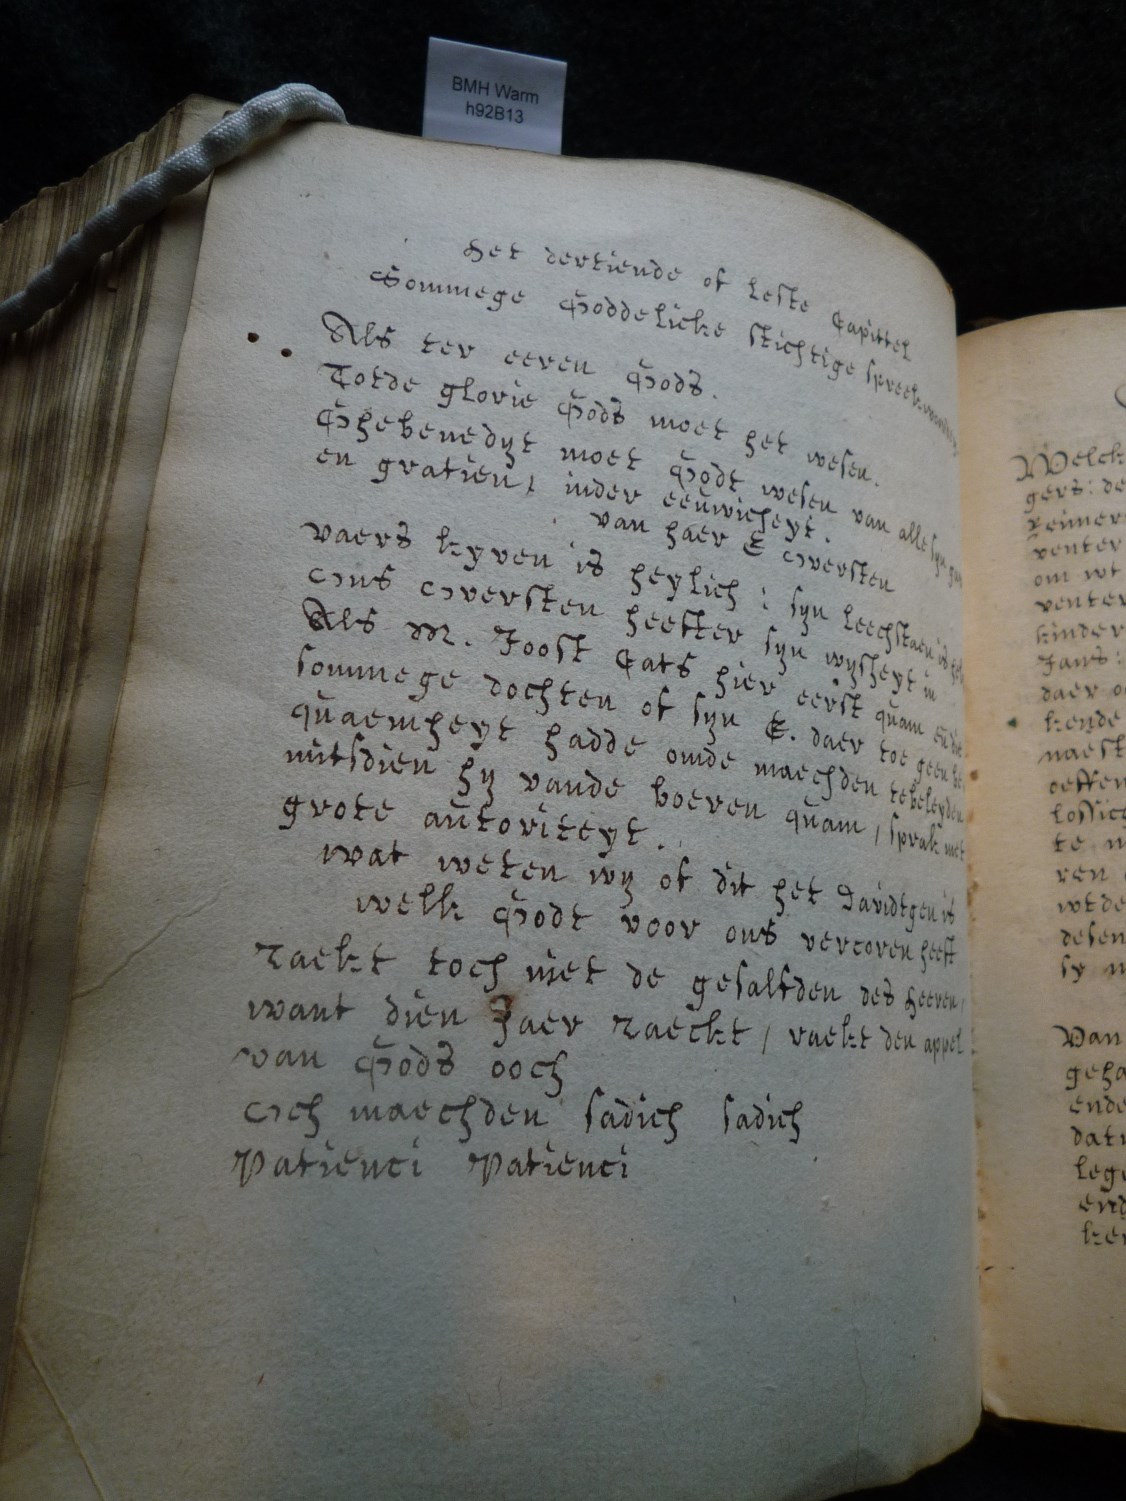 BMH Warm
h92B13
Het dertiende of leste Capittel
Sommege Goddelicke stichtige spreekwoorden
Als ter eeren Godts.
Totde glorie Godts moet het wesen.
Ghebenedyt moet Godt wesen van alle syn
en gratien, inder eeuwicheyt.
van haer E Oversten
vaers kyven is heylich : syn leechstaen is
Ons Oversten heefter syn wysheyt in
Als M. Joost Cats hier eerst quam en die
sommege dochten of syn E. daer toe geen be
quaemheyt hadde omde maechden tebeleyden
mitsdien hy vande boeren quam, sprak met
grote autoriteyt.
wat weten wy of dit het Davidtgen is
welk Godt voor ons vercoren heeft
Raekt toch niet de gesalfden des heeren,
want dien haer Raeckt, raekt den appel
van Godts ooch
Och maechden sadich sadich
Patienci Patienci
Welck
gers: de
venter
om wt
venter
kinder
Jans:
daer o
kende
maest
oeffen
te
ren
wtde
desen
sy
Van
geha
ende
dat
lege
ende